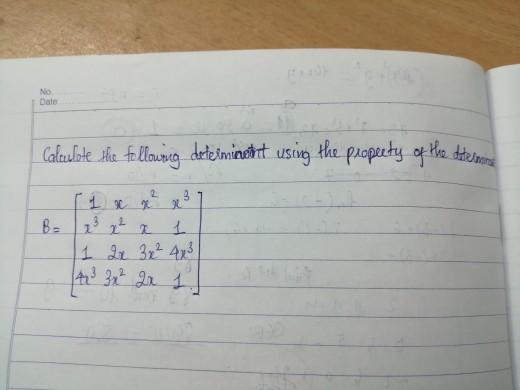 No.
Date
Calculate the following determinant using the property of the
B =
1 x x² x³
x³ x² x 1
1 2x 3x² 4x³
4x³ 3x² 2x 1